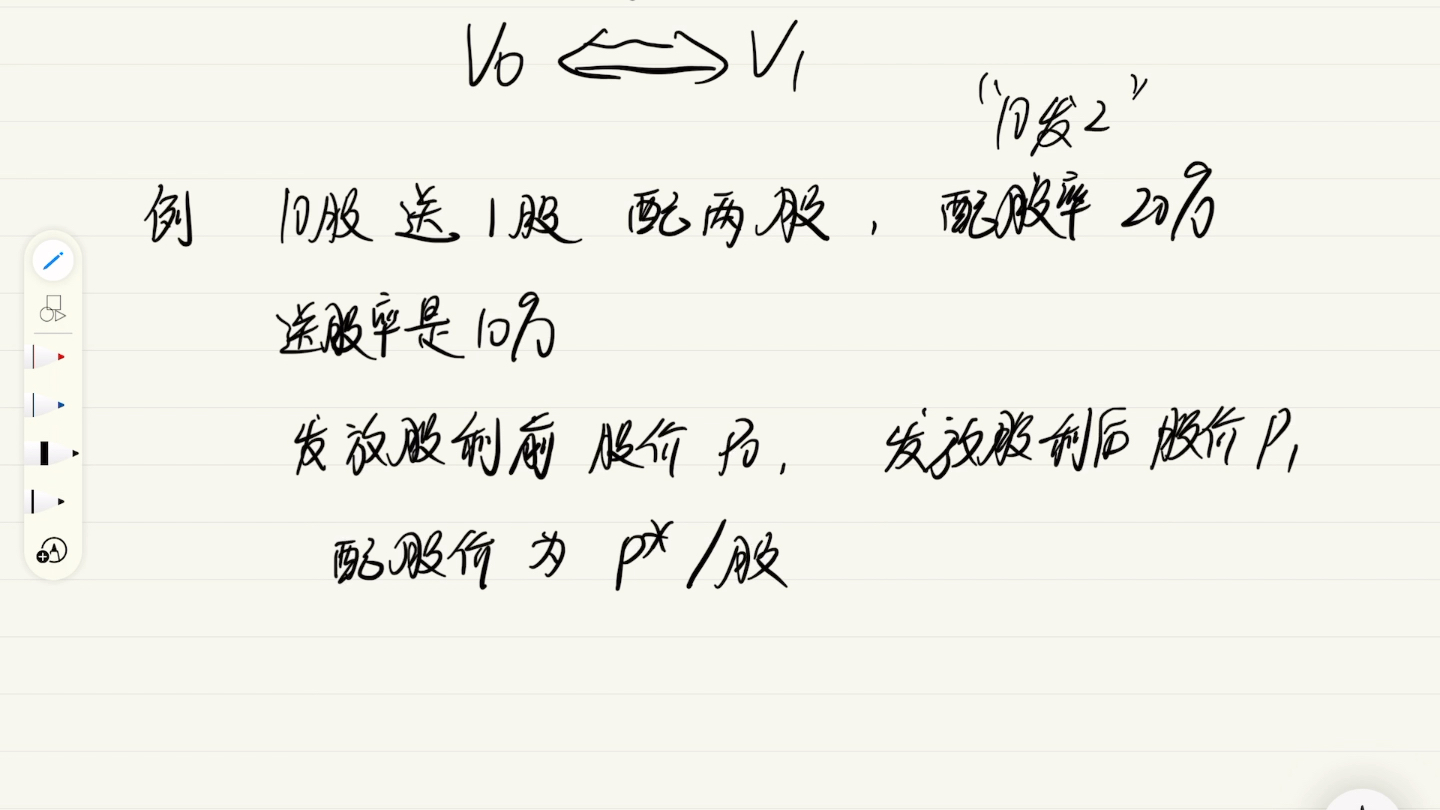 V0 ⇔ V1
"10发2"
例 10股送1股 配两股, 配股率20%
送股率是10%
发放股利前 股价 P0, 发放股利后 股价 P1
配股价 为 P* /股